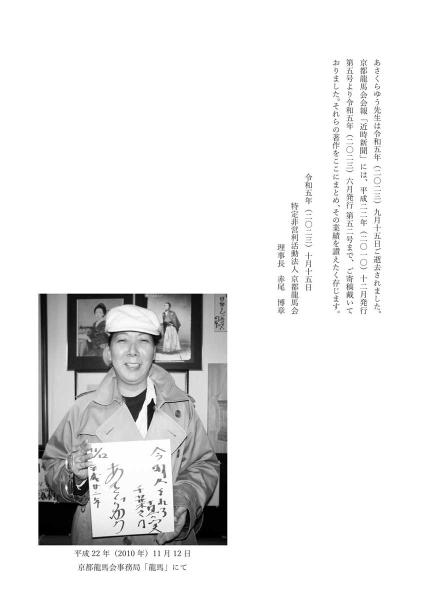 あさくらゆう先生は令和五年（二〇二三）九月十五日ご逝去されました。
京都龍馬会会報「近時新聞」には、平成二二年（二〇一〇）十二月発行
第五号より令和五年（二〇二三）六月発行 第五二号まで、ご寄稿戴いて
おりました。それらの著作をここにまとめ、その業績を讃えたく存じます。
令和五年（二〇二三）十月十五日
特定非営利活動法人 京都龍馬会
理事長　赤尾　博章
今明かされる
真実
千葉さな
あさくらゆう
平成廿二年
平成 22 年（2010 年）11 月 12 日
京都龍馬会事務局「龍馬」にて